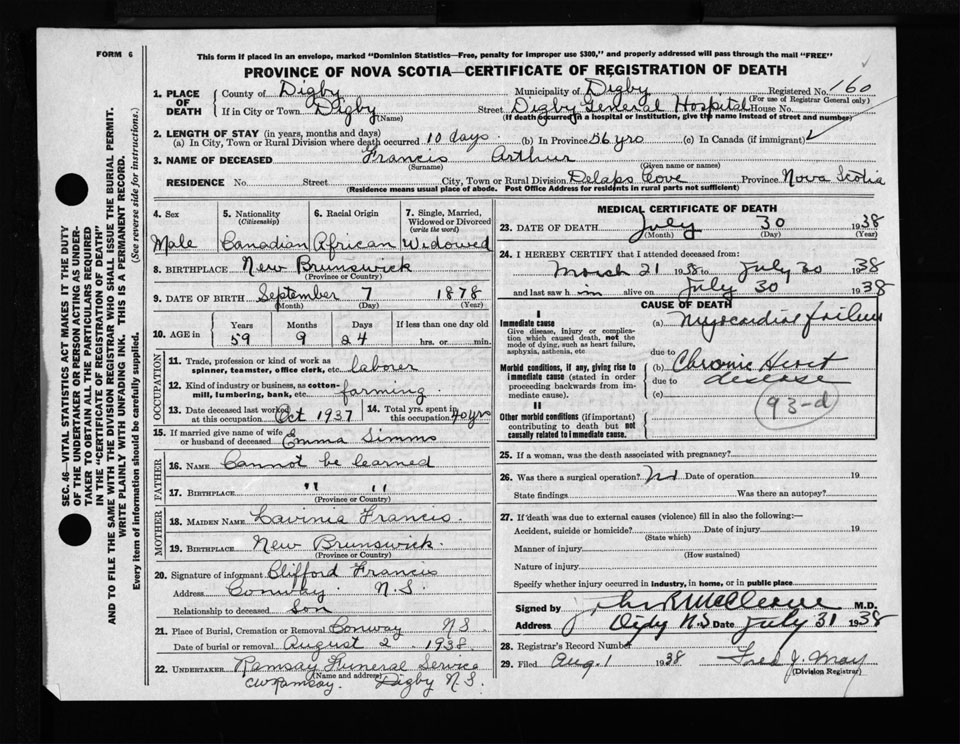 FORM 6
This form if placed in an envelope, marked "Dominion Statistics—Free, penalty for improper use $300," and properly addressed will pass through the mail "FREE"
PROVINCE OF NOVA SCOTIA—CERTIFICATE OF REGISTRATION OF DEATH
1. PLACE OF DEATH
County of Digby Municipality of Digby Registered No. 160
(For use of Registrar General only)
If in City or Town Digby Street Digby General Hospital House No.
(Name) (If death occurred in a hospital or institution, give the name instead of street and number)
2. LENGTH OF STAY (in years, months and days)
(a) In City, Town or Rural Division where death occurred 10 days. (b) In Province 56 yrs (c) In Canada (if immigrant)
3. NAME OF DECEASED Francis Arthur
(Surname) (Given name or names)
RESIDENCE No. Street City, Town or Rural Division Delaps Cove Province Nova Scotia
(Residence means usual place of abode. Post Office Address for residents in rural parts not sufficient)
4. Sex
Male
5. Nationality
(Citizenship)
Canadian
6. Racial Origin
African
7. Single, Married,
Widowed or Divorced
(write the word)
Widowed
8. BIRTHPLACE New Brunswick
(Province or Country)
9. DATE OF BIRTH September 7 1878
(Month) (Day) (Year)
10. AGE in
Years Months Days If less than one day old
59 9 24 hrs. or min.
OCCUPATION
11. Trade, profession or kind of work as
spinner, teamster, office clerk, etc. laborer
12. Kind of industry or business, as cotton-
mill, lumbering, bank, etc. farming.
13. Date deceased last worked
at this occupation Oct 1937
14. Total yrs. spent in
this occupation 40 yrs
15. If married give name of wife
or husband of deceased Emma Simms
FATHER
16. NAME Cannot be learned
17. BIRTHPLACE " "
(Province or Country)
MOTHER
18. MAIDEN NAME Lavinia Francis.
19. BIRTHPLACE New Brunswick.
(Province or Country)
20. Signature of informant Clifford Francis
Address Conway N.S.
Relationship to deceased Son
21. Place of Burial, Cremation or Removal Conway N.S.
Date of burial or removal August 2 1938
22. UNDERTAKER Ramsay Funeral Service
(Name and address)
CW Ramsay. Digby N.S.
MEDICAL CERTIFICATE OF DEATH
23. DATE OF DEATH July 30 1938
(Month) (Day) (Year)
24. I HEREBY CERTIFY that I attended deceased from:
March 21 1938 to July 30 1938
and last saw him alive on July 30 1938
CAUSE OF DEATH
I
Immediate cause
Give disease, injury or complica-
tion which caused death, not the
mode of dying, such as heart failure,
asphyxia, asthenia, etc
(a) Myocardial failure
due to
Morbid conditions, if any, giving rise to
immediate cause (stated in order
proceeding backwards from im-
mediate cause).
(b) Chronic Heart
due to disease
(c)
93-d
II
Other morbid conditions (if important)
contributing to death but not
causally related to immediate cause.
25. If a woman, was the death associated with pregnancy?
26. Was there a surgical operation? No Date of operation 19
State findings Was there an autopsy?
27. If death was due to external causes (violence) fill in also the following:—
Accident, suicide or homicide? Date of injury 19
(State which)
Manner of injury
(How sustained)
Nature of injury
Specify whether injury occurred in industry, in home, or in public place
Signed by M.D.
Address Digby N.S Date July 31 1938
28. Registrar's Record Number
29. Filed Aug. 1 1938 Fred J. May
(Division Registrar)
SEC. 46—VITAL STATISTICS ACT MAKES IT THE DUTY
OF THE UNDERTAKER OR PERSON ACTING AS UNDER-
TAKER TO OBTAIN ALL THE PARTICULARS REQUIRED
IN THE "CERTIFICATE OF REGISTRATION OF DEATH"
AND TO FILE THE SAME WITH THE DIVISION REGISTRAR WHO SHALL ISSUE THE BURIAL PERMIT.
WRITE PLAINLY WITH UNFADING INK. THIS IS A PERMANENT RECORD.
Every item of information should be carefully supplied. (See reverse side for instructions.)